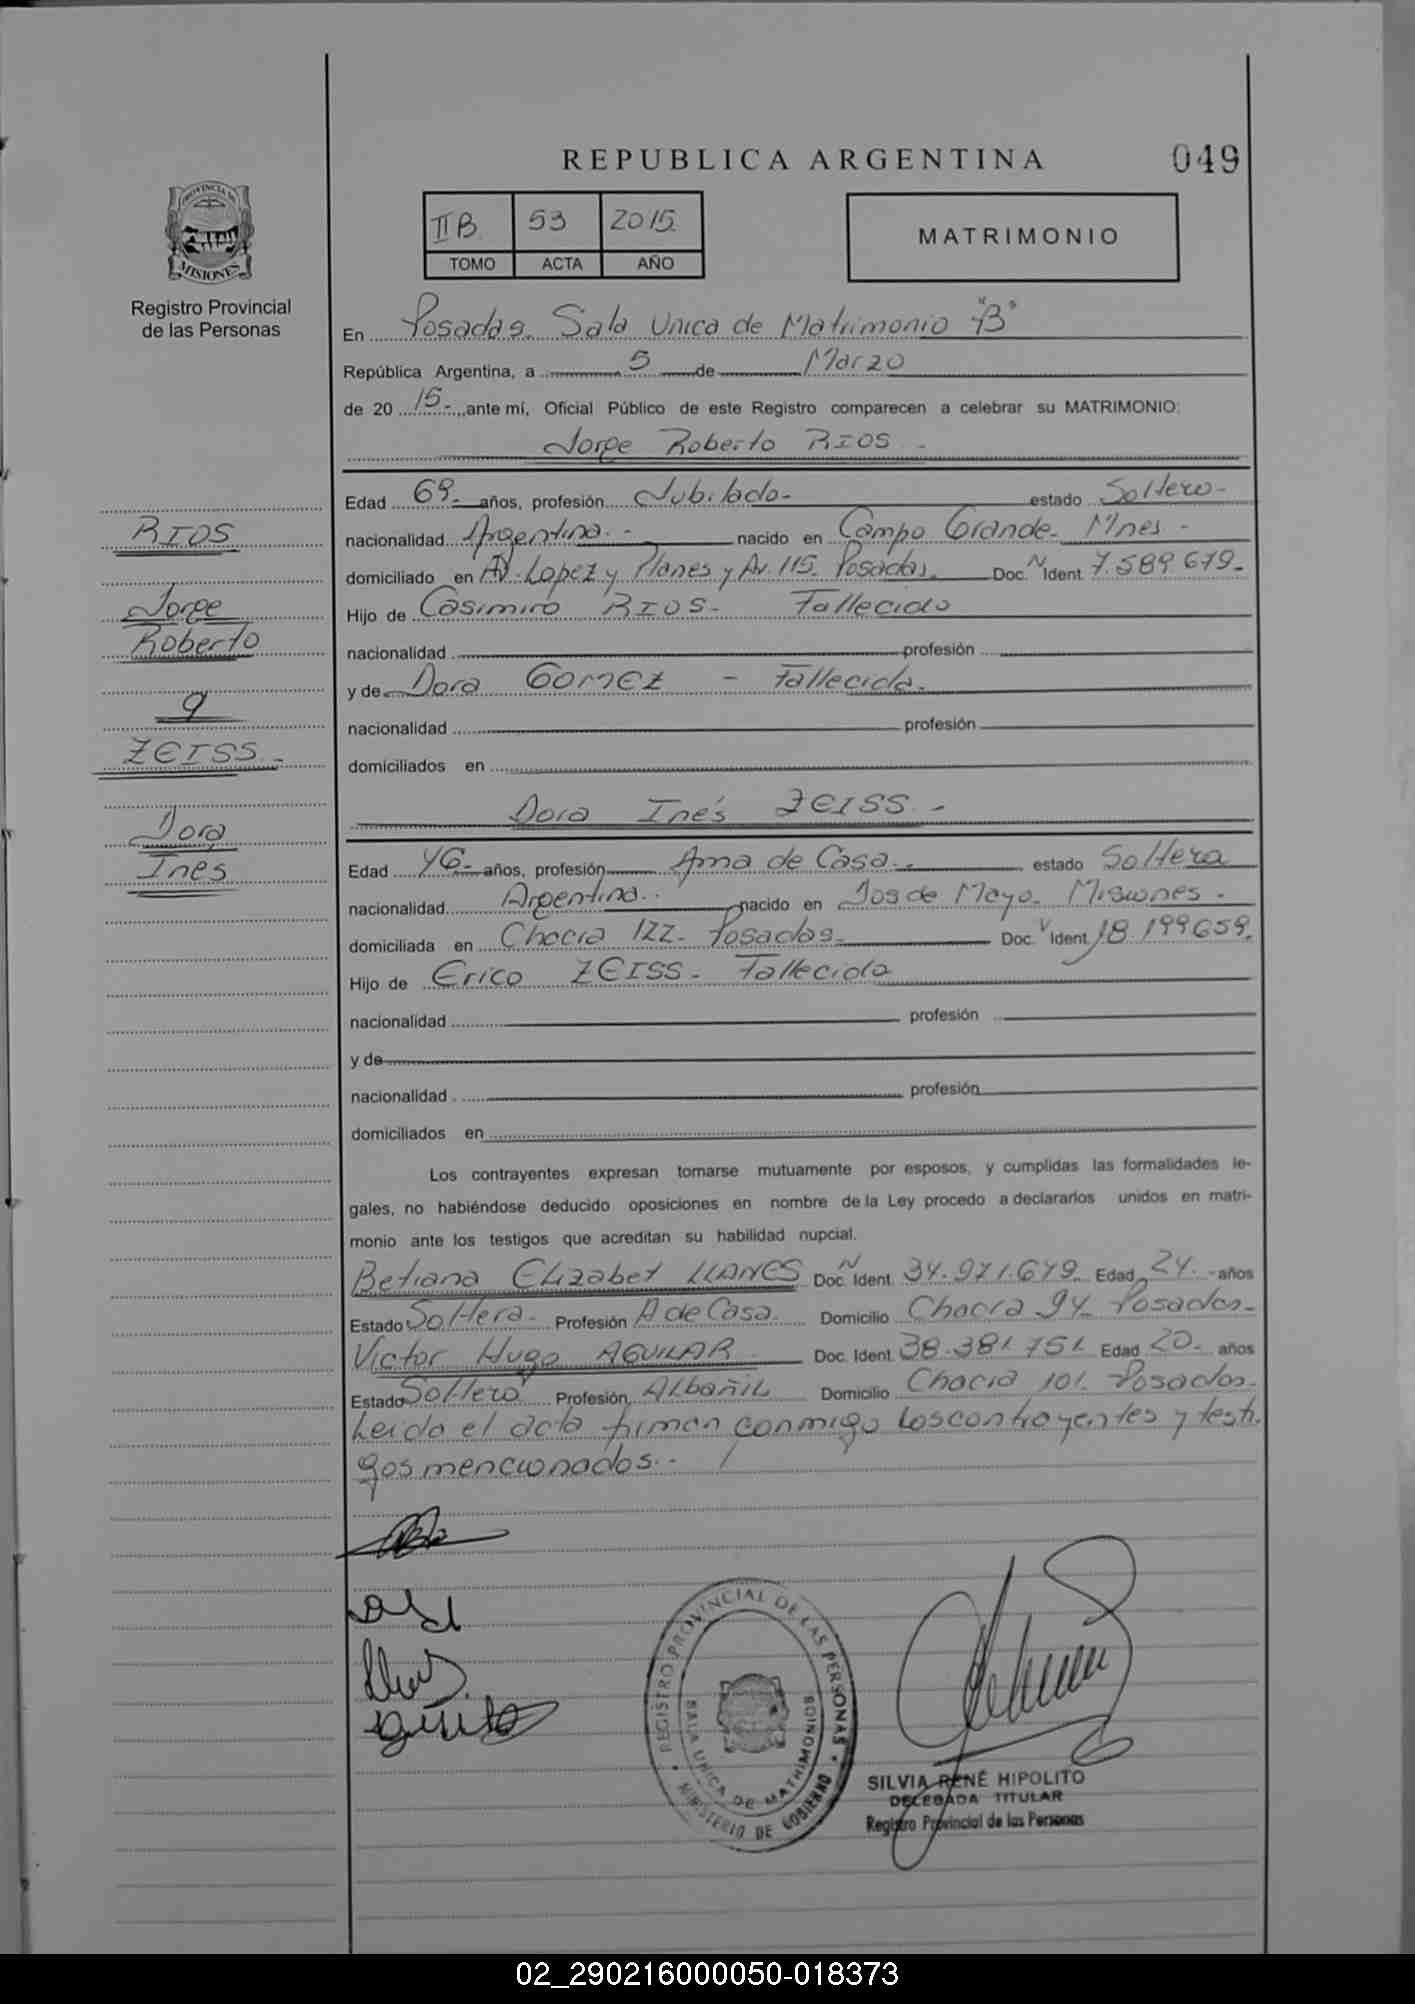 REPUBLICA ARGENTINA
049
PROVINCIA DE
MISIONES
Registro Provincial
de las Personas
II B. 53 2015
TOMO ACTA AÑO
MATRIMONIO
En Posadas. Sala Unica de Matrimonio "B"
República Argentina, a 5 de Marzo
de 20 15- ante mí, Oficial Público de este Registro comparecen a celebrar su MATRIMONIO:
Jorge Roberto RIOS -
Edad 69- años, profesión Jubilado- estado Soltero-
nacionalidad Argentina.- nacido en Campo Grande- Mnes-
domiciliado en Av. Lopez y Planes y Av. 115. Posadas. Doc. N Ident 7.589 679-
Hijo de Casimiro RIOS- Fallecido
nacionalidad profesión
y de Dora GOMEZ - Fallecida.
nacionalidad profesión
domiciliados en
Dora Inés ZEISS.-
Edad 46- años, profesión Ama de Casa.- estado Soltera
nacionalidad Argentina.. nacido en Dos de Mayo. Misiones.
domiciliada en Chacra 122- Posadas- Doc. Ident. 18.199659.
Hijo de Erico ZEISS- Fallecido
nacionalidad profesión
y de
nacionalidad profesión
domiciliados en
Los contrayentes expresan tomarse mutuamente por esposos, y cumplidas las formalidades le-
gales, no habiéndose deducido oposiciones en nombre de la Ley procedo a declararlos unidos en matri-
monio ante los testigos que acreditan su habilidad nupcial.
Betiana Elizabet LLANES Doc. N Ident. 34.971.679 Edad 24.- años
Estado Soltera- Profesión A de Casa. Domicilio Chacra 94- Posadas-
Victor Hugo AGUILAR Doc. Ident. 38.381 751 Edad 20- años
Estado Soltero Profesión Albañil Domicilio Chacra 101. Posadas-
Leida el acta firman conmigo los contrayentes y testi-
gos mencionados.-
RIOS
Jorge
Roberto
y
ZEISS-
Dora
Ines
REGISTRO PROVINCIAL DE LAS PERSONAS
SALA UNICA DE MATRIMONIOS
MINISTERIO DE GOBIERNO
SILVIA RENÉ HIPOLITO
DELEGADA TITULAR
Registro Provincial de las Personas
02_290216000050-018373